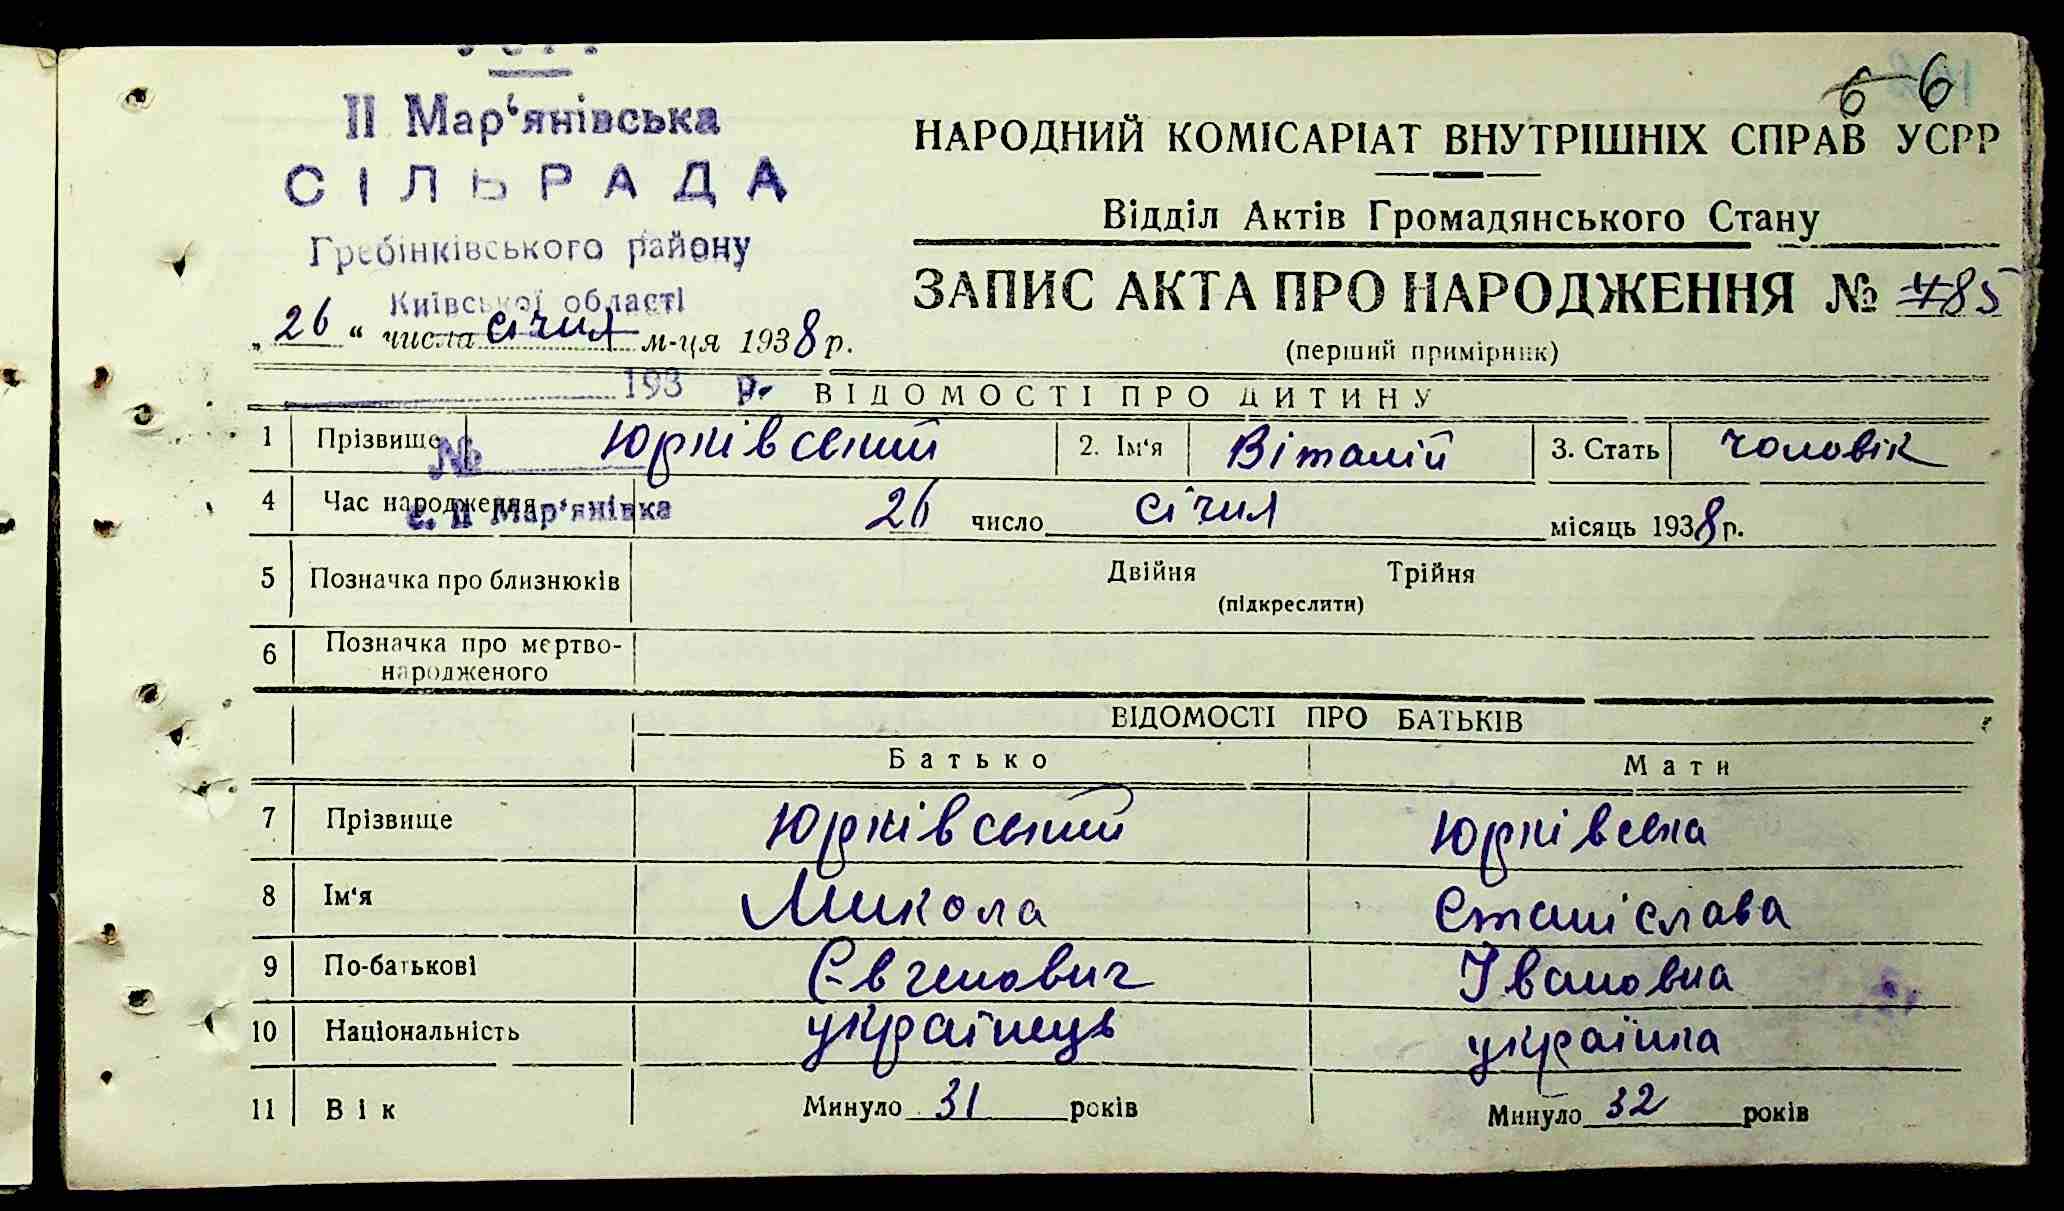 6 6
ІІ Мар‘янівська
СІЛЬРАДА
Гребінківського району
Київської області
„ 26 “ числа січня м-ця 1938 р.
193 р.
№
с. ІІ Мар‘янівка
НАРОДНИЙ КОМІСАРІАТ ВНУТРІШНІХ СПРАВ УСРР
Відділ Актів Громадянського Стану
ЗАПИС АКТА ПРО НАРОДЖЕННЯ №
(перший примірник)
ВІДОМОСТІ ПРО ДИТИНУ
1 Прізвище Юрківський 2. Ім‘я Віталій 3. Стать чоловік
4 Час народження 26 число січня місяць 1938 р.
5 Позначка про близнюків Двійня Трійня
(підкреслити)
6 Позначка про мертво-
народженого
ВІДОМОСТІ ПРО БАТЬКІВ
Батько Мати
7 Прізвище Юрківський Юрківська
8 Ім‘я Микола Станіслава
9 По-батькові Євгенович Івановна
10 Національність українець українка
11 Вік Минуло 31 років Минуло 32 років